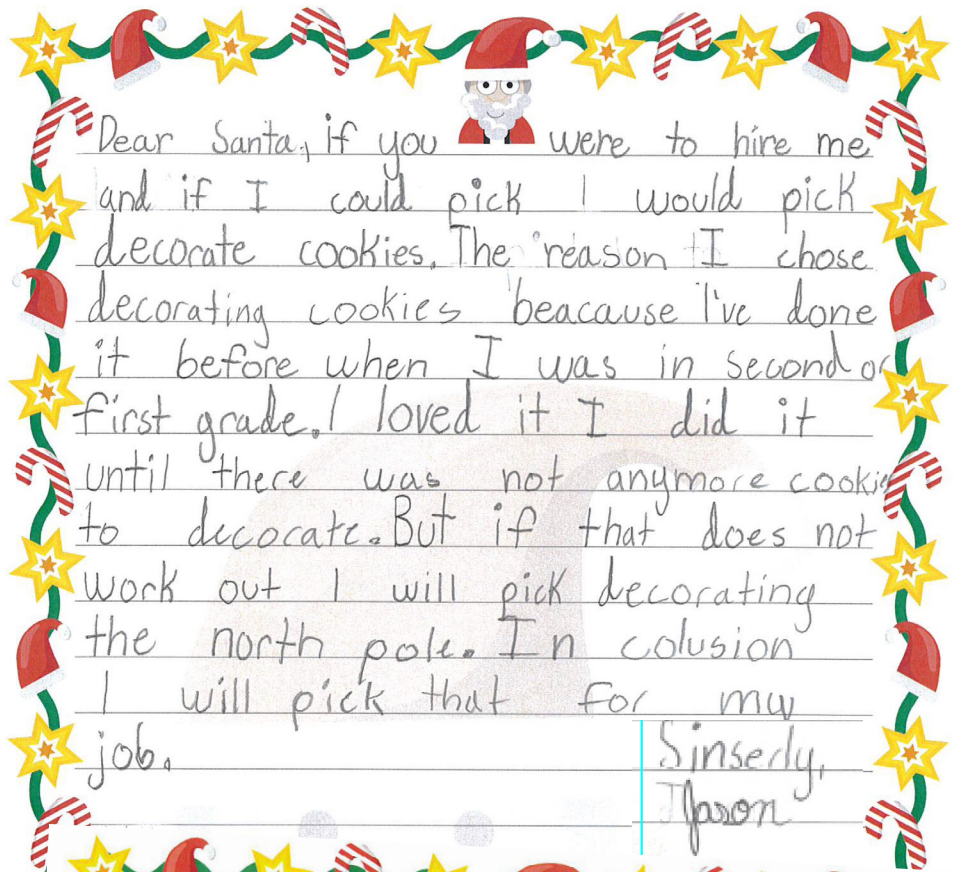 Dear Santa, if you were to hire me
and if I could pick I would pick
decorate cookies. The reason I chose
decorating cookies beacause I've done
it before when I was in second or
first grade. I loved it I did it
until there was not anymore cookie
to decorate. But if that does not
work out I will pick decorating
the north pole. In colusion
I will pick that for my
job.
Sinserly,
Jason